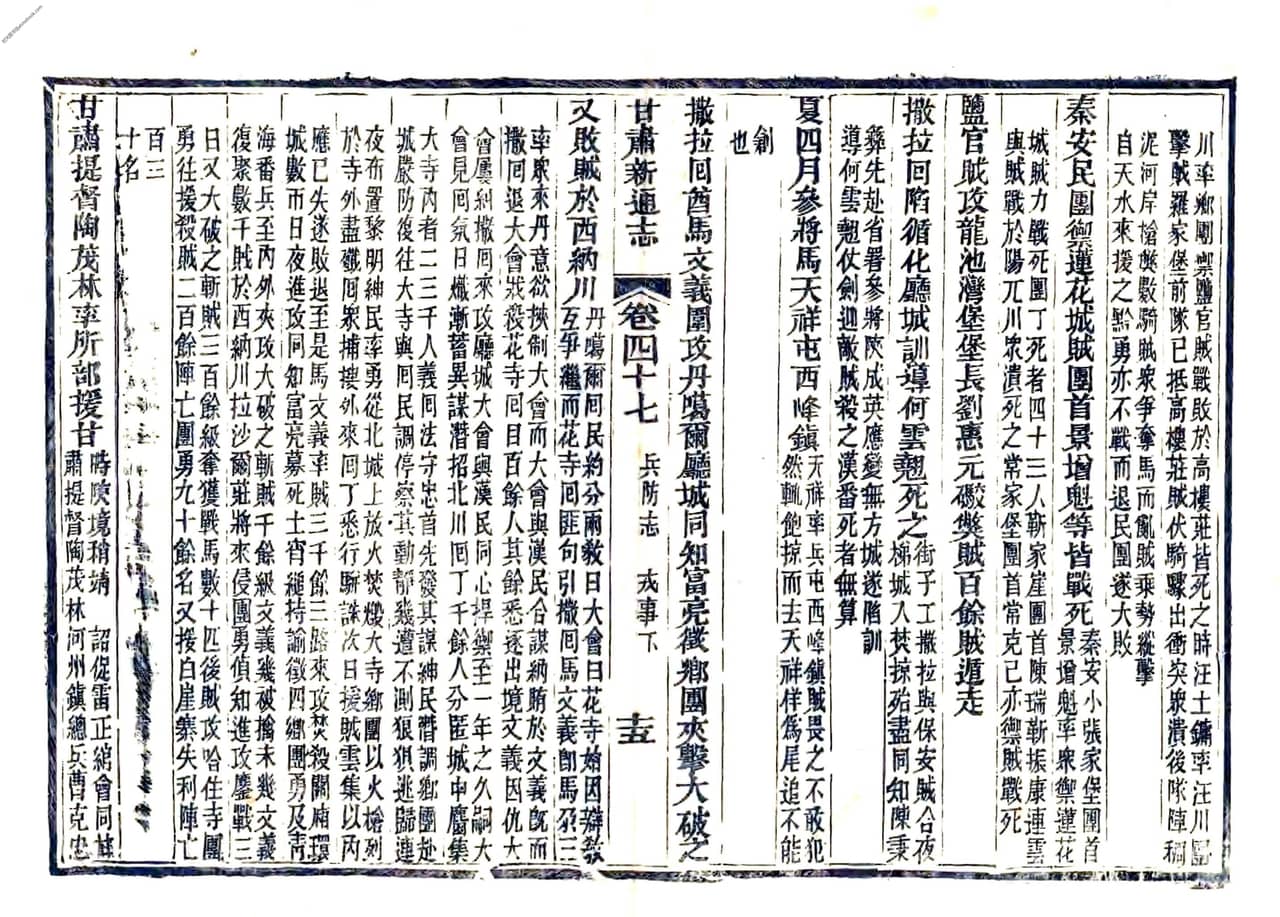 川率鄉團禦鹽官賊戰敗於高樓莊皆死之時汪土鏞率汪川團
擊賊羅家堡前隊已抵高樓莊賊伏騎驟出衝突衆潰後隊陣稠
泥河岸槍斃數騎賊衆爭奪馬而亂賊乘勢縱擊
自天水來援之黔勇亦不戰而退民團遂大敗
秦安民團禦蓮花城賊團首景增魁等皆戰死
秦安小張家堡團首
景增魁率衆禦蓮花
城賊力戰死團丁死者四十三人靳家崖團首陳瑞靳振康連雲
與賊戰於陽兀川衆潰死之常家堡團首常克已亦禦賊戰死
鹽官賊攻龍池灣堡堡長劉惠元礮斃賊百餘賊遁走
撒拉回陷循化廳城訓導何雲翹死之
街子工撒拉與保安賊合夜
梯城入焚掠殆盡同知陳秉
彝先赴省署參將陝成英應變無方城遂陷訓
導何雲翹仗劍迎敵賊殺之漢番死者無算
夏四月參將馬天祥屯西峰鎮
天祥率兵屯西峰鎮賊畏之不敢犯
然輒飽掠而去天祥佯爲尾追不能
剿
也
撒拉回酋馬文義圍攻丹噶爾廳城同知富亮徵鄉團夾擊大破之
甘肅新通志
卷四十七
兵防志
戎事下
十五
又敗賊於西納川
丹噶爾回民約分兩敎曰大會曰花寺始因辯敎
互爭繼而花寺回匪句引撒回馬文義卽馬尕三
率衆來丹意欲挾制大會而大會與漢民合謀納賄於文義旣而
撒回退大會戕殺花寺回目百餘人其餘悉逐出境文義因仇大
會屢糾撒回來攻廳城大會與漢民同心捍禦至一年之久嗣大
會見回氛日熾漸蓄異謀潛招北川回丁千餘人分匿城中廬集
大寺內者二三千人義回法守忠首先發其謀紳民潛調鄉團赴
城嚴防復往大寺與回民調停察其動靜幾遭不測狼狽逃歸連
夜布置黎明紳民率勇從北城上放火焚燬大寺鄉團以火槍列
於寺外盡殲回衆捕搜外來回丁悉行駢誅次日援賊雲集以內
應已失遂敗退至是馬文義率賊三千餘三路來攻焚殺關廂環
城數市日夜進攻同知富亮募死士宵縋持諭徵四鄉團勇及青
海番兵至內外夾攻大破之斬賊千餘級文義幾被擒未幾文義
復聚數千賊於西納川拉沙爾莊將來侵團勇偵知進攻鏖戰三
日又大破之斬賊三百餘級奪獲戰馬數十匹後賊攻哈住寺團
勇往援殺賊二百餘陣亡團勇九十餘名又援白崖寨失利陣亡
百三
十名
甘肅提督陶茂林率所部援甘
時陝境稍靖 詔促雷正綰會同甘
肅提督陶茂林河州鎮總兵曹克忠